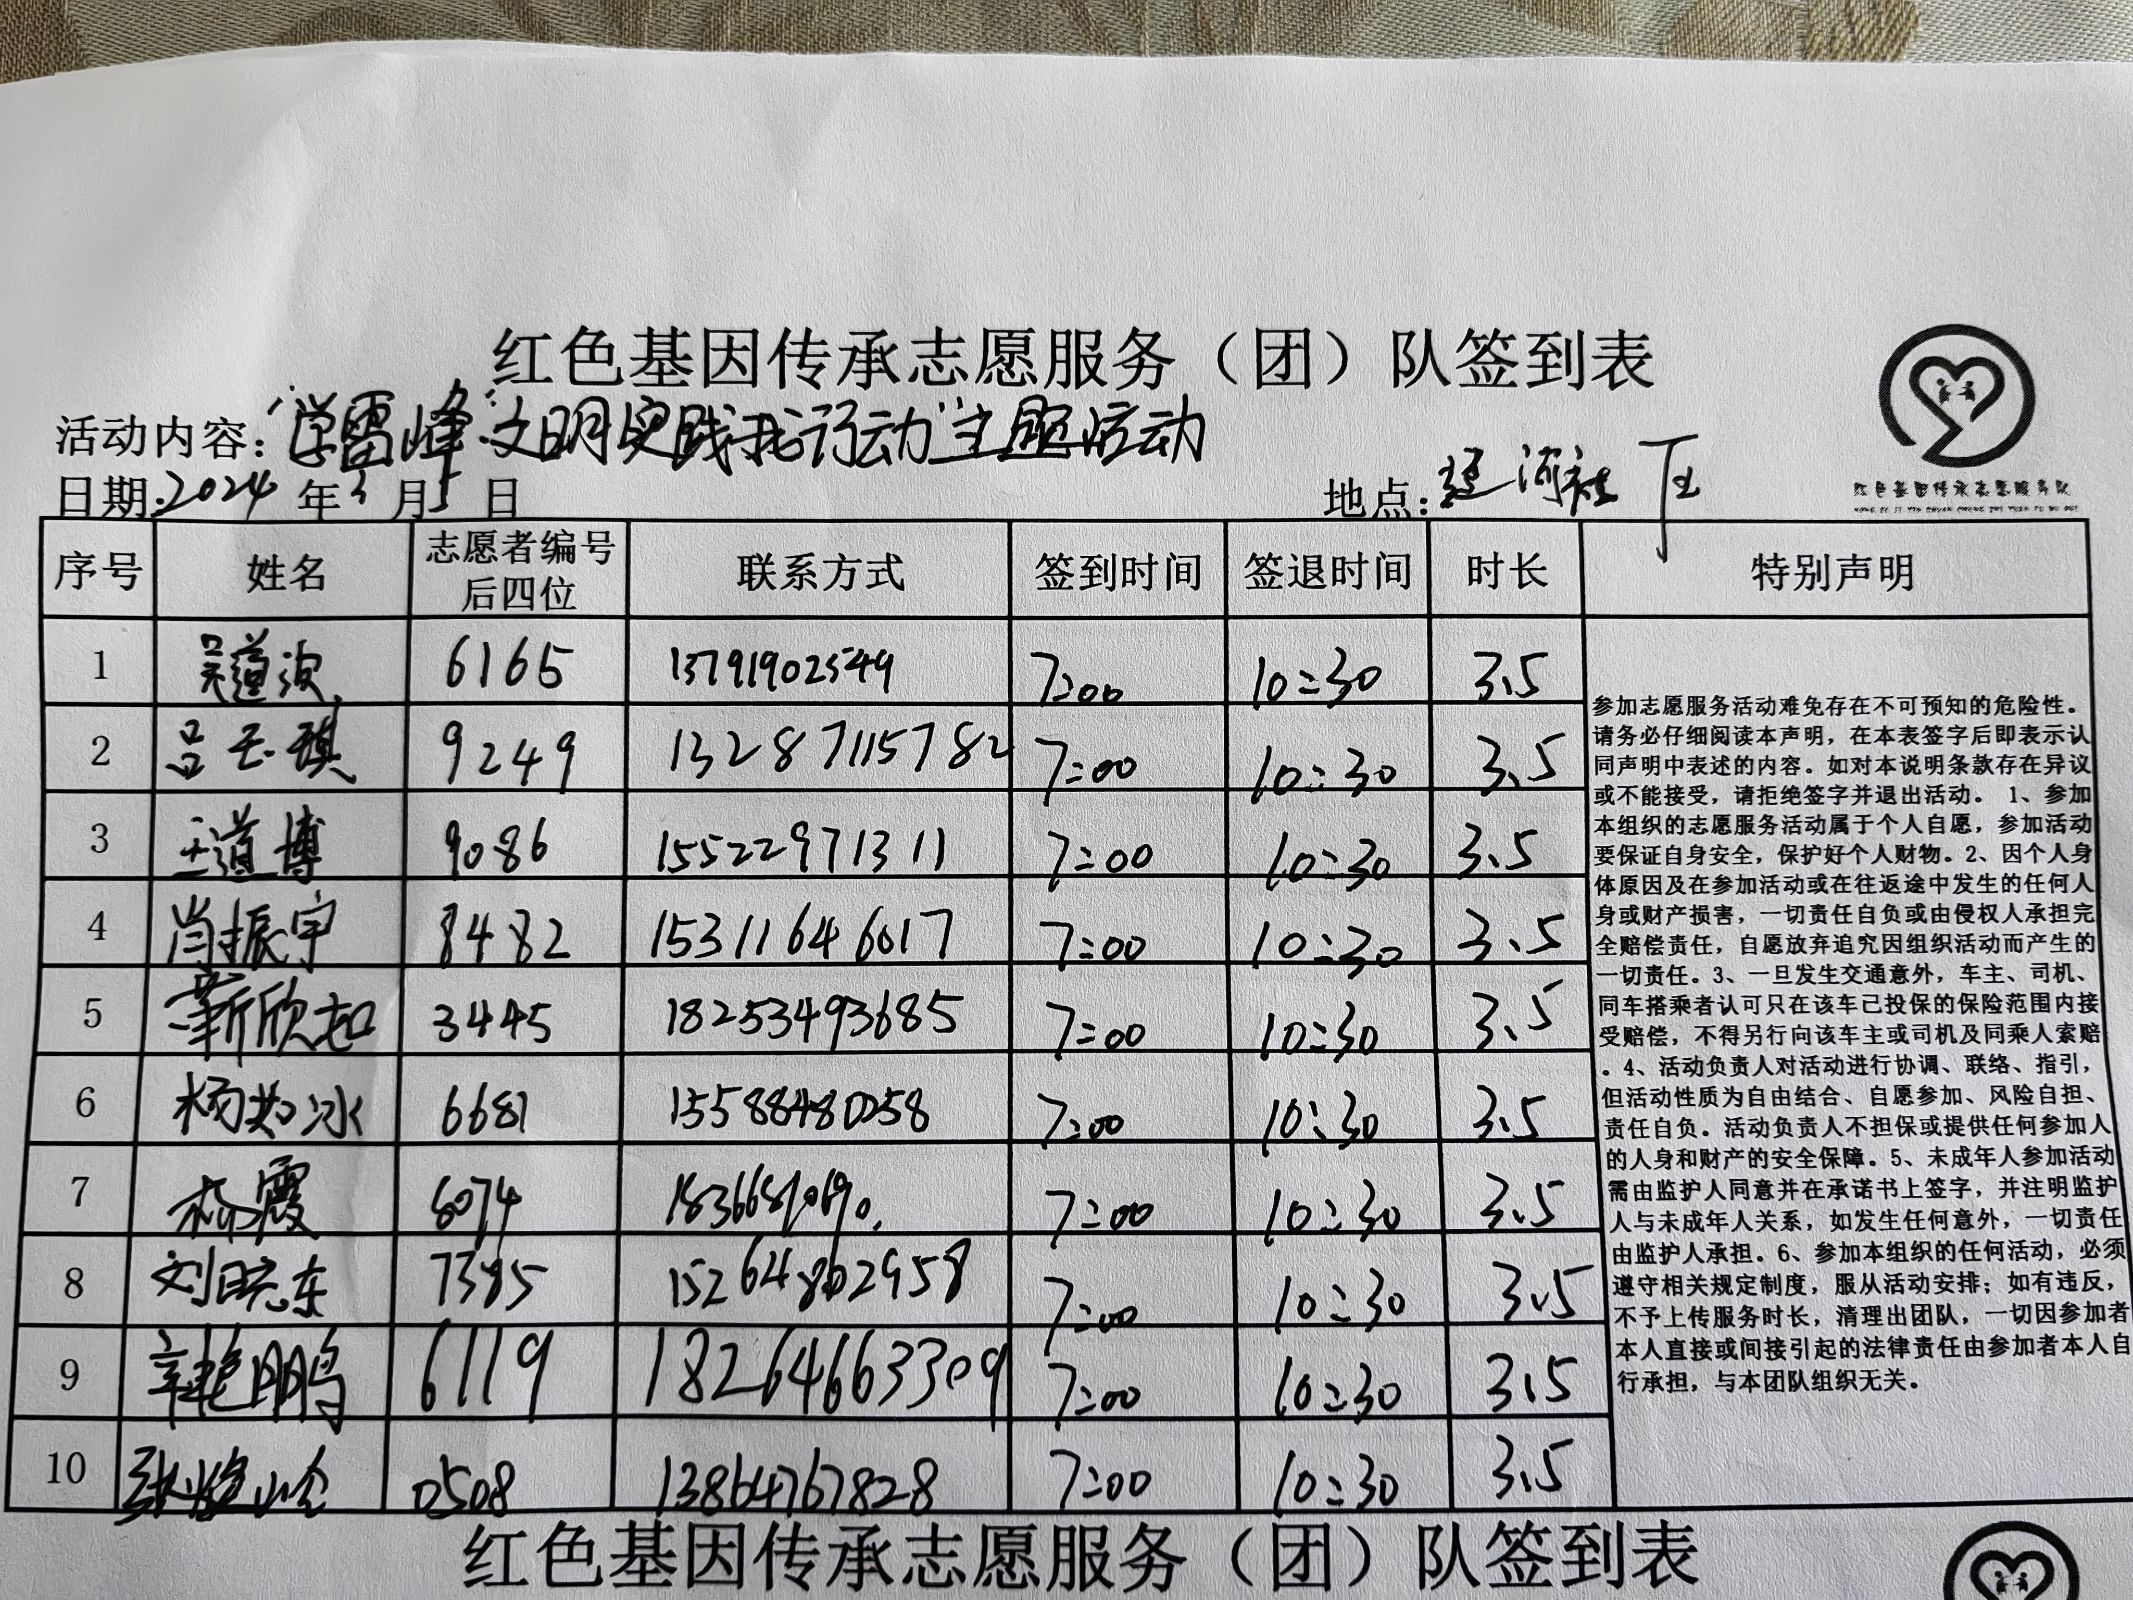 红色基因传承志愿服务（团）队签到表
活动内容：“学雷锋”文明实践我行动”主题活动
日期：2024年3月5日 地点：河社区
红色基因传承志愿服务队
序号 姓名 志愿者编号后四位 联系方式 签到时间 签退时间 时长 特别声明
1 吴道波 6165 13791902549 7:00 10:30 3.5
2 吕玉琪 9249 13287115782 7:00 10:30 3.5
3 王道博 9086 15522971311 7:00 10:30 3.5
4 肖振宇 8482 15311646017 7:00 10:30 3.5
5 靳欣如 3445 18253493685 7:00 10:30 3.5
6 杨如冰 6681 15588480258 7:00 10:30 3.5
7 杨霞 6074 7:00 10:30 3.5
8 刘晓东 7385 15264862958 7:00 10:30 3.5
9 辛艳鹏 6119 18264663309 7:00 10:30 3.5
10 0508 13864767828 7:00 10:30 3.5
参加志愿服务活动难免存在不可预知的危险性。
请务必仔细阅读本声明，在本表签字后即表示认
同声明中表述的内容。如对本说明条款存在异议
或不能接受，请拒绝签字并退出活动。1、参加
本组织的志愿服务活动属于个人自愿，参加活动
要保证自身安全，保护好个人财物。2、因个人身
体原因及在参加活动或在往返途中发生的任何人
身或财产损害，一切责任自负或由侵权人承担完
全赔偿责任，自愿放弃追究因组织活动而产生的
一切责任。3、一旦发生交通意外，车主、司机、
同车搭乘者认可只在该车已投保的保险范围内接
受赔偿，不得另行向该车主或司机及同乘人索赔
。4、活动负责人对活动进行协调、联络、指引，
但活动性质为自由结合、自愿参加、风险自担、
责任自负。活动负责人不担保或提供任何参加人
的人身和财产的安全保障。5、未成年人参加活动
需由监护人同意并在承诺书上签字，并注明监护
人与未成年人关系，如发生任何意外，一切责任
由监护人承担。6、参加本组织的任何活动，必须
遵守相关规定制度，服从活动安排；如有违反，
不予上传服务时长，清理出团队，一切因参加者
本人直接或间接引起的法律责任由参加者本人自
行承担，与本团队组织无关。
红色基因传承志愿服务（团）队签到表